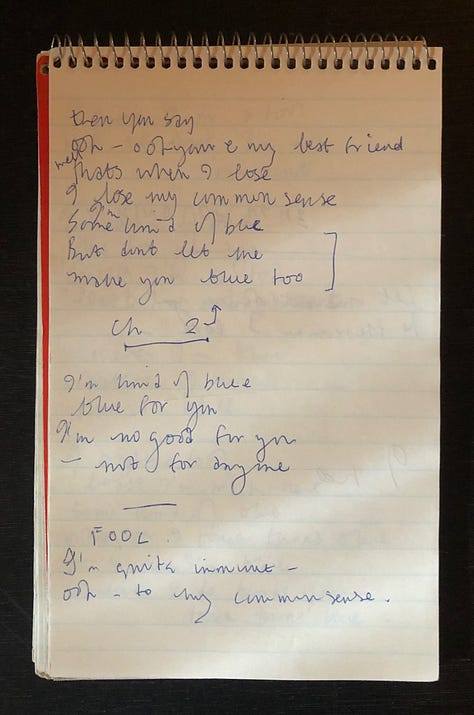 then you say
ooh - ooh you're my best friend
well thats when I lose
I lose my common sense
So I'm kind of blue
But dont let me
make you blue too
Ch 2
I'm kind of blue
blue for you
I'm no good for you
— not for anyone
FOOL
I'm quite immune -
ooh - to my common sense.